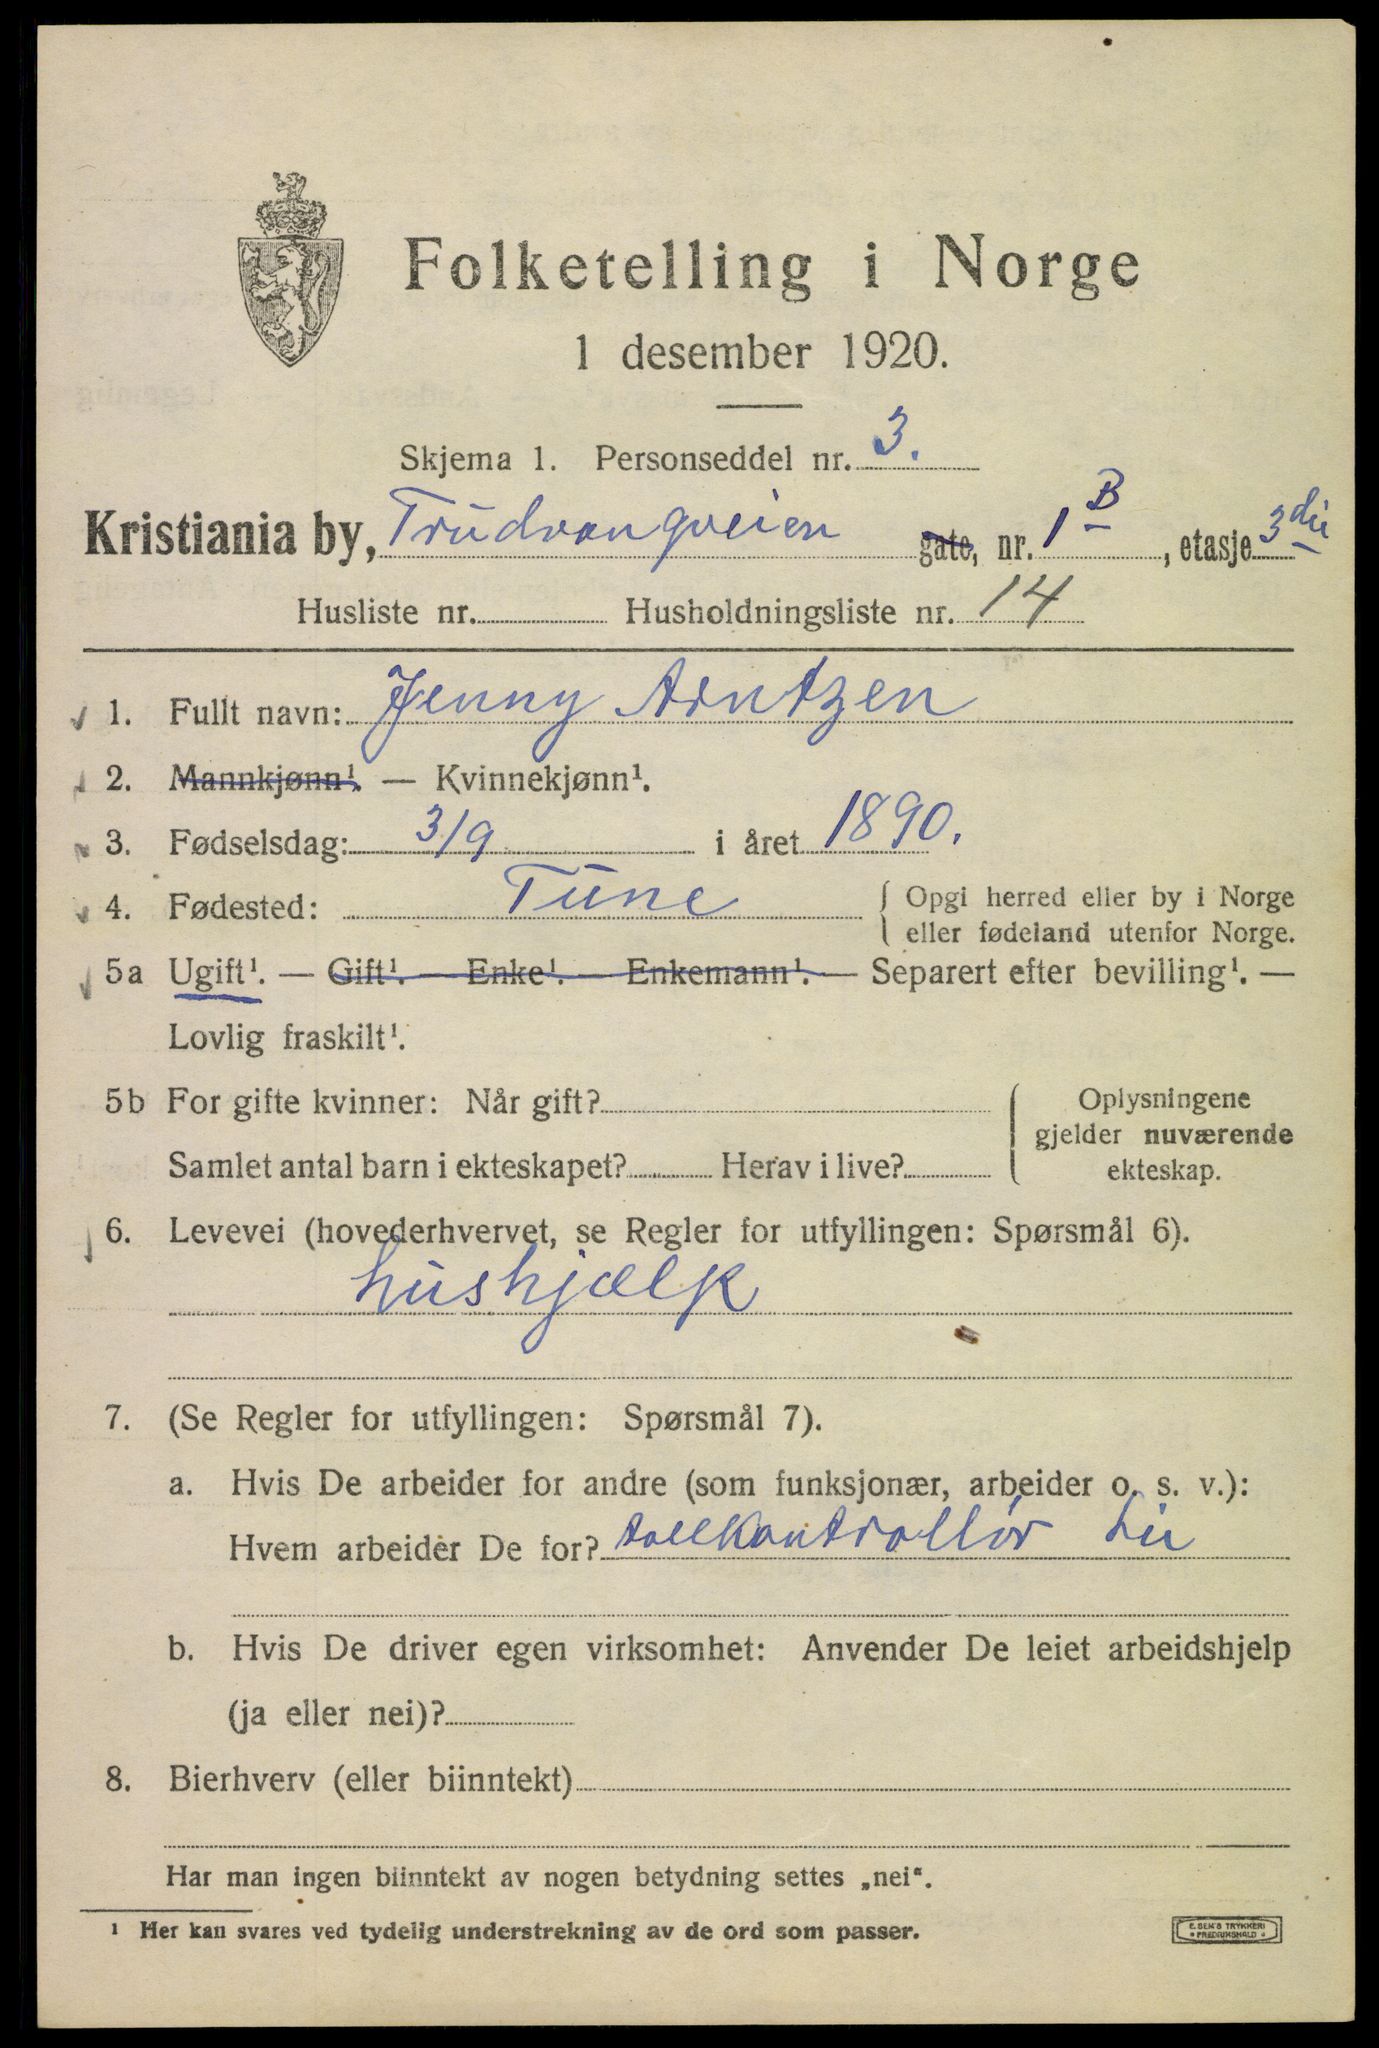 Folketelling i Norge
1 desember 1920.
Skjema 1. Personseddel nr. 3.
Kristiania by, Trudvangveien gate, nr. 1 B, etasje 3die
Husliste nr. Husholdningsliste nr. 14
1. Fullt navn: Jenny Arntzen
2. Mannkjønn¹. — Kvinnekjønn¹.
3. Fødselsdag: 3/9 i året 1890.
4. Fødested: Tune { Opgi herred eller by i Norge
eller fødeland utenfor Norge.
5a Ugift¹. — Gift¹. — Enke¹. — Enkemann¹. — Separert efter bevilling¹. —
Lovlig fraskilt¹.
5b For gifte kvinner: Når gift? Oplysningene
gjelder nuværende
Samlet antal barn i ekteskapet? Herav i live? ekteskap.
6. Levevei (hovederhvervet, se Regler for utfyllingen: Spørsmål 6).
hushjælp
7. (Se Regler for utfyllingen: Spørsmål 7).
a. Hvis De arbeider for andre (som funksjonær, arbeider o. s. v.):
Hvem arbeider De for? tollkontrollör Lie
b. Hvis De driver egen virksomhet: Anvender De leiet arbeidshjelp
(ja eller nei)?
8. Bierhverv (eller biinntekt)
Har man ingen biinntekt av nogen betydning settes „nei".
¹ Her kan svares ved tydelig understrekning av de ord som passer.
E. SEM'S TRYKKERI
FREDRIKSHALD